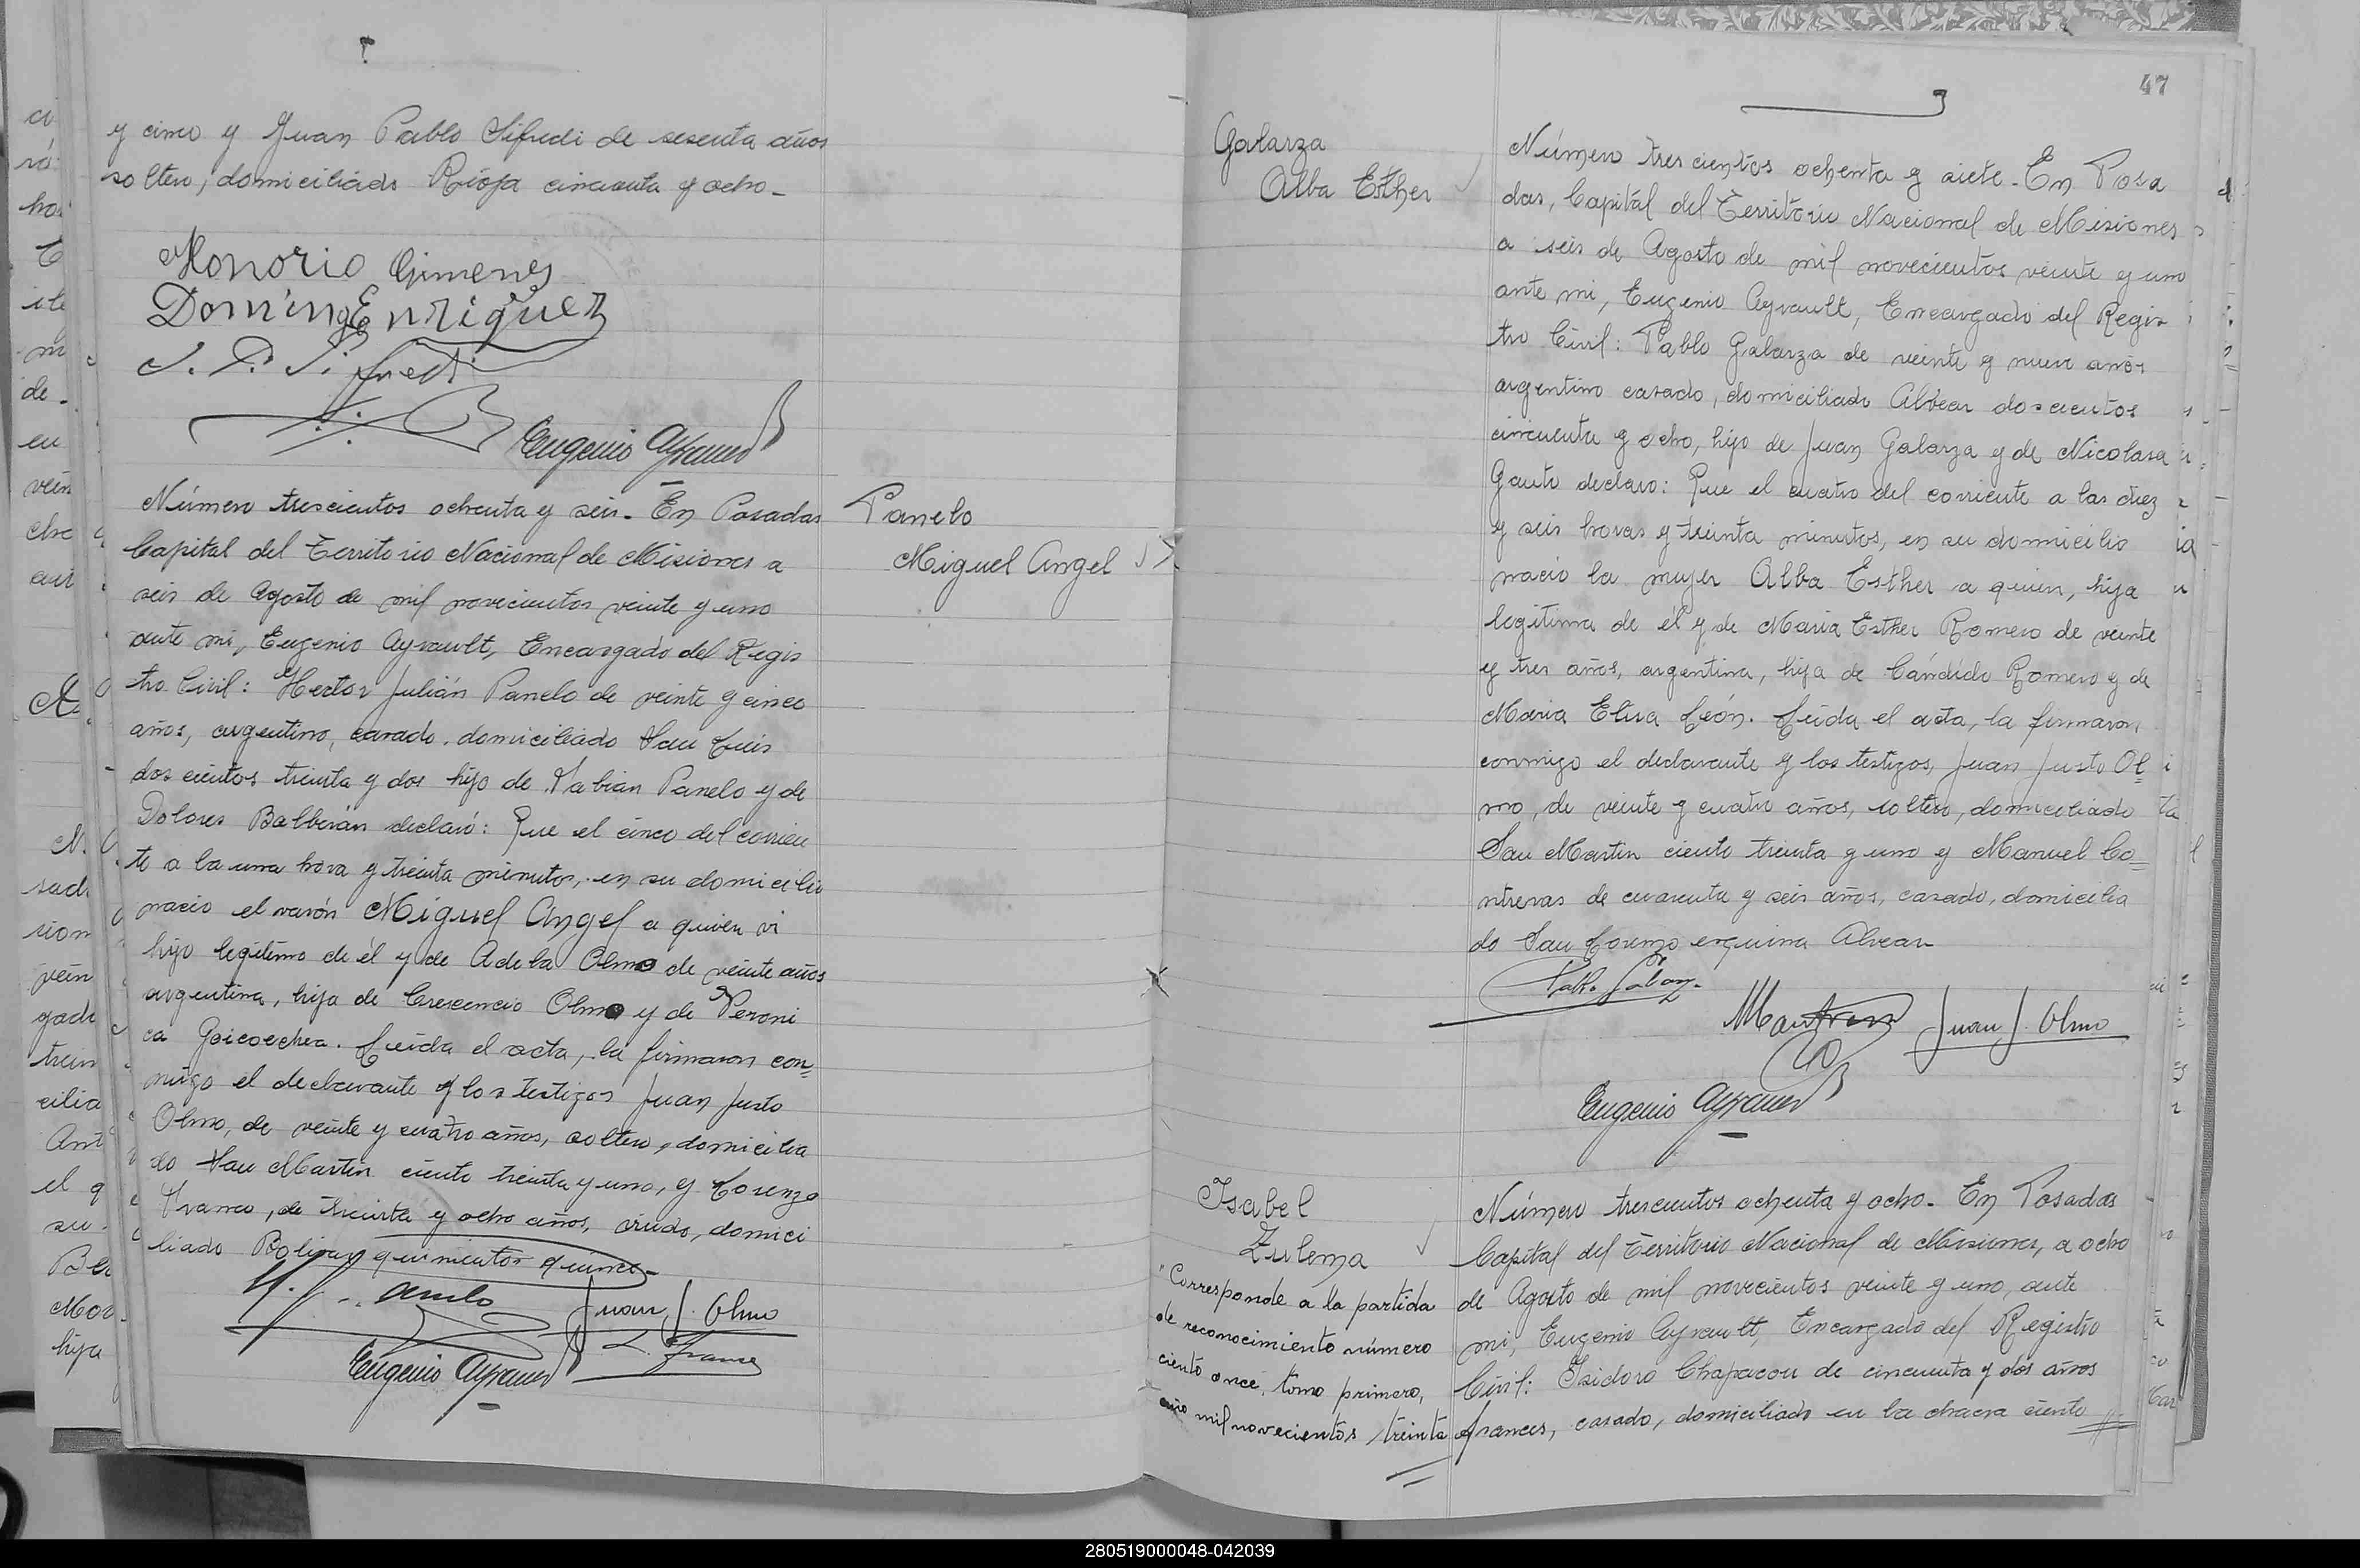 y cinco y Juan Pablo Sifredi de sesenta años
soltero, domiciliado Rioja cincuenta y ocho-
Honorio Gimenes
Domingo Enriquez
J. P. Sifredi
Eugenio Ayrault
Número trescientos ochenta y seis. En Posadas
Capital del Territorio Nacional de Misiones a
seis de Agosto de mil novecientos veinte y uno
ante mi, Eugenio Ayrault, Encargado del Regis
tro Civil: Hector Julián Panelo de veinte y cinco
años, argentino, casado, domiciliado San Luis
dos cientos treinta y dos hijo de Fabian Panelo y de
Dolores Balberán declaró: Que el cinco del corrien
te a la una hora y treinta minutos, en su domicilio
nació el varón Miguel Angel a quien vi
hijo legítimo de él y de Adela Olmo de veinte años
argentina, hija de Crescencio Olmo y de Veroni
ca Goicoechea. Leida el acta, la firmaron con=
migo el declarante y los testigos Juan Justo
Olmo, de veinte y cuatro años, soltero, domicilia
do San Martin ciento treinta y uno, y Lorenzo
Franco, de treinta y ocho años, viudo, domici
liado Bolivar quinientos quince-
H. J. Panelo
Juan J. Olmo
L. Franco
Eugenio Ayrault
Panelo
Miguel Angel
47
Galarza
Alba Esther
Número tres cientos ochenta y siete. En Posa
das, Capital del Territorio Nacional de Misiones
a seis de Agosto de mil novecientos veinte y uno
ante mi, Eugenio Ayrault, Encargado del Regis
tro Civil: Pablo Galarza de veinte y nueve años
argentino casado, domiciliado Alvear doscientos
cincuenta y ocho, hijo de Juan Galarza y de Nicolasa
Gauto declaro: Que el cuatro del corriente a las diez
y seis horas y treinta minutos, en su domicilio
nació la mujer Alba Esther a quien, hija
legitima de él y de Maria Esther Romero de veinte
y tres años, argentina, hija de Cándido Romero y de
Maria Elisa León. Leida el acta, la firmaron
conmigo el declarante y los testigos, Juan Justo Ol=
mo, de veinte y cuatro años, soltero, domiciliado
San Martin ciento treinta y uno y Manuel Co=
ntreras de cuarenta y seis años, casado, domicilia
do San Lorenzo esquina Alvear
Juan J. Olmo
Eugenio Ayrault
Isabel
Zulema
"Corresponde a la partida
de reconocimiento número
ciento once, tomo primero,
año mil novecientos treinta
Número trescientos ochenta y ocho. En Posadas
Capital del Territorio Nacional de Misiones, a ocho
de Agosto de mil novecientos veinte y uno, ante
mi, Eugenio Ayrault, Encargado del Registro
Civil: Isidoro Chapacou de cincuenta y dos años
frances, casado, domiciliado en la chacra ciento
280519000048-042039